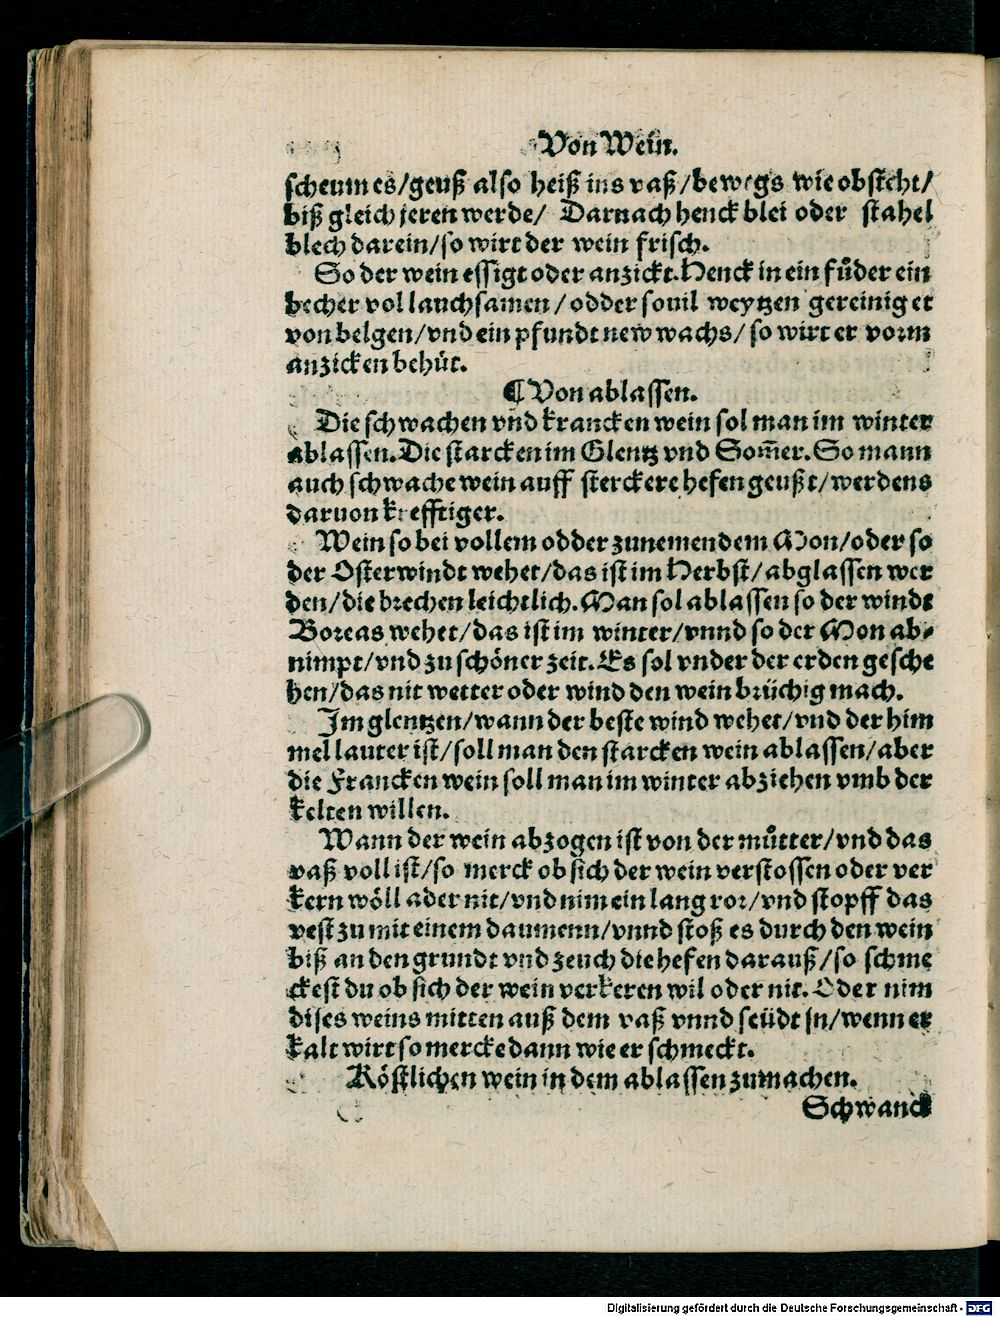 Von Wein.
scheum es/geuß also heiß ins vaß/bewegs wie obsteht/
biß gleich jeren werde/ Darnach henck blei oder stahel
blech darein/so wirt der wein frisch.
So der wein essigt oder anzickt. Henck in ein fůder ein
becher vol lauchsamen/odder souil weytzen gereiniget
von belgen/vnd ein pfundt new wachs/so wirt er vorm
anzicken behüt.
¶ Von ablassen.
Die schwachen vnd krancken wein sol man im winter
ablassen. Die starcken im Glentz vnd Som̄er. So mann
auch schwache wein auff sterckere hefen geußt/werdens
daruon krefftiger.
Wein so bei vollem odder zunemendem Mon/oder so
der Osterwindt wehet/das ist im Herbst/abglassen wer
den/die brechen leichtlich. Man sol ablassen so der windt
Boreas wehet/das ist im winter/vnnd so der Mon ab-
nimpt/vnd zu schöner zeit. Es sol vnder der erden gesche
hen/das nit wetter oder wind den wein brüchig mach.
Im glentzen/wann der beste wind wehet/vnd der him
mel lauter ist/soll man den starcken wein ablassen/aber
die Francken wein soll man im winter abziehen vmb der
kelten willen.
Wann der wein abzogen ist von der můtter/vnd das
vaß voll ist/so merck ob sich der wein verstossen oder ver
kern wöll ader nit/vnd nim ein lang ror/vnd stopff das
vest zu mit einem daumenn/vnnd stoß es durch den wein
biß an den grundt vnd zeuch die hefen darauß/so schme
ckest du ob sich der wein verkeren wil oder nit. Oder nim
dises weins mitten auß dem vaß vnnd seüdt jn/wenn er
kalt wirt so mercke dann wie er schmeckt.
Köstlichen wein in dem ablassen zumachen.
Schwanck
Digitalisierung gefördert durch die Deutsche Forschungsgemeinschaft - DFG